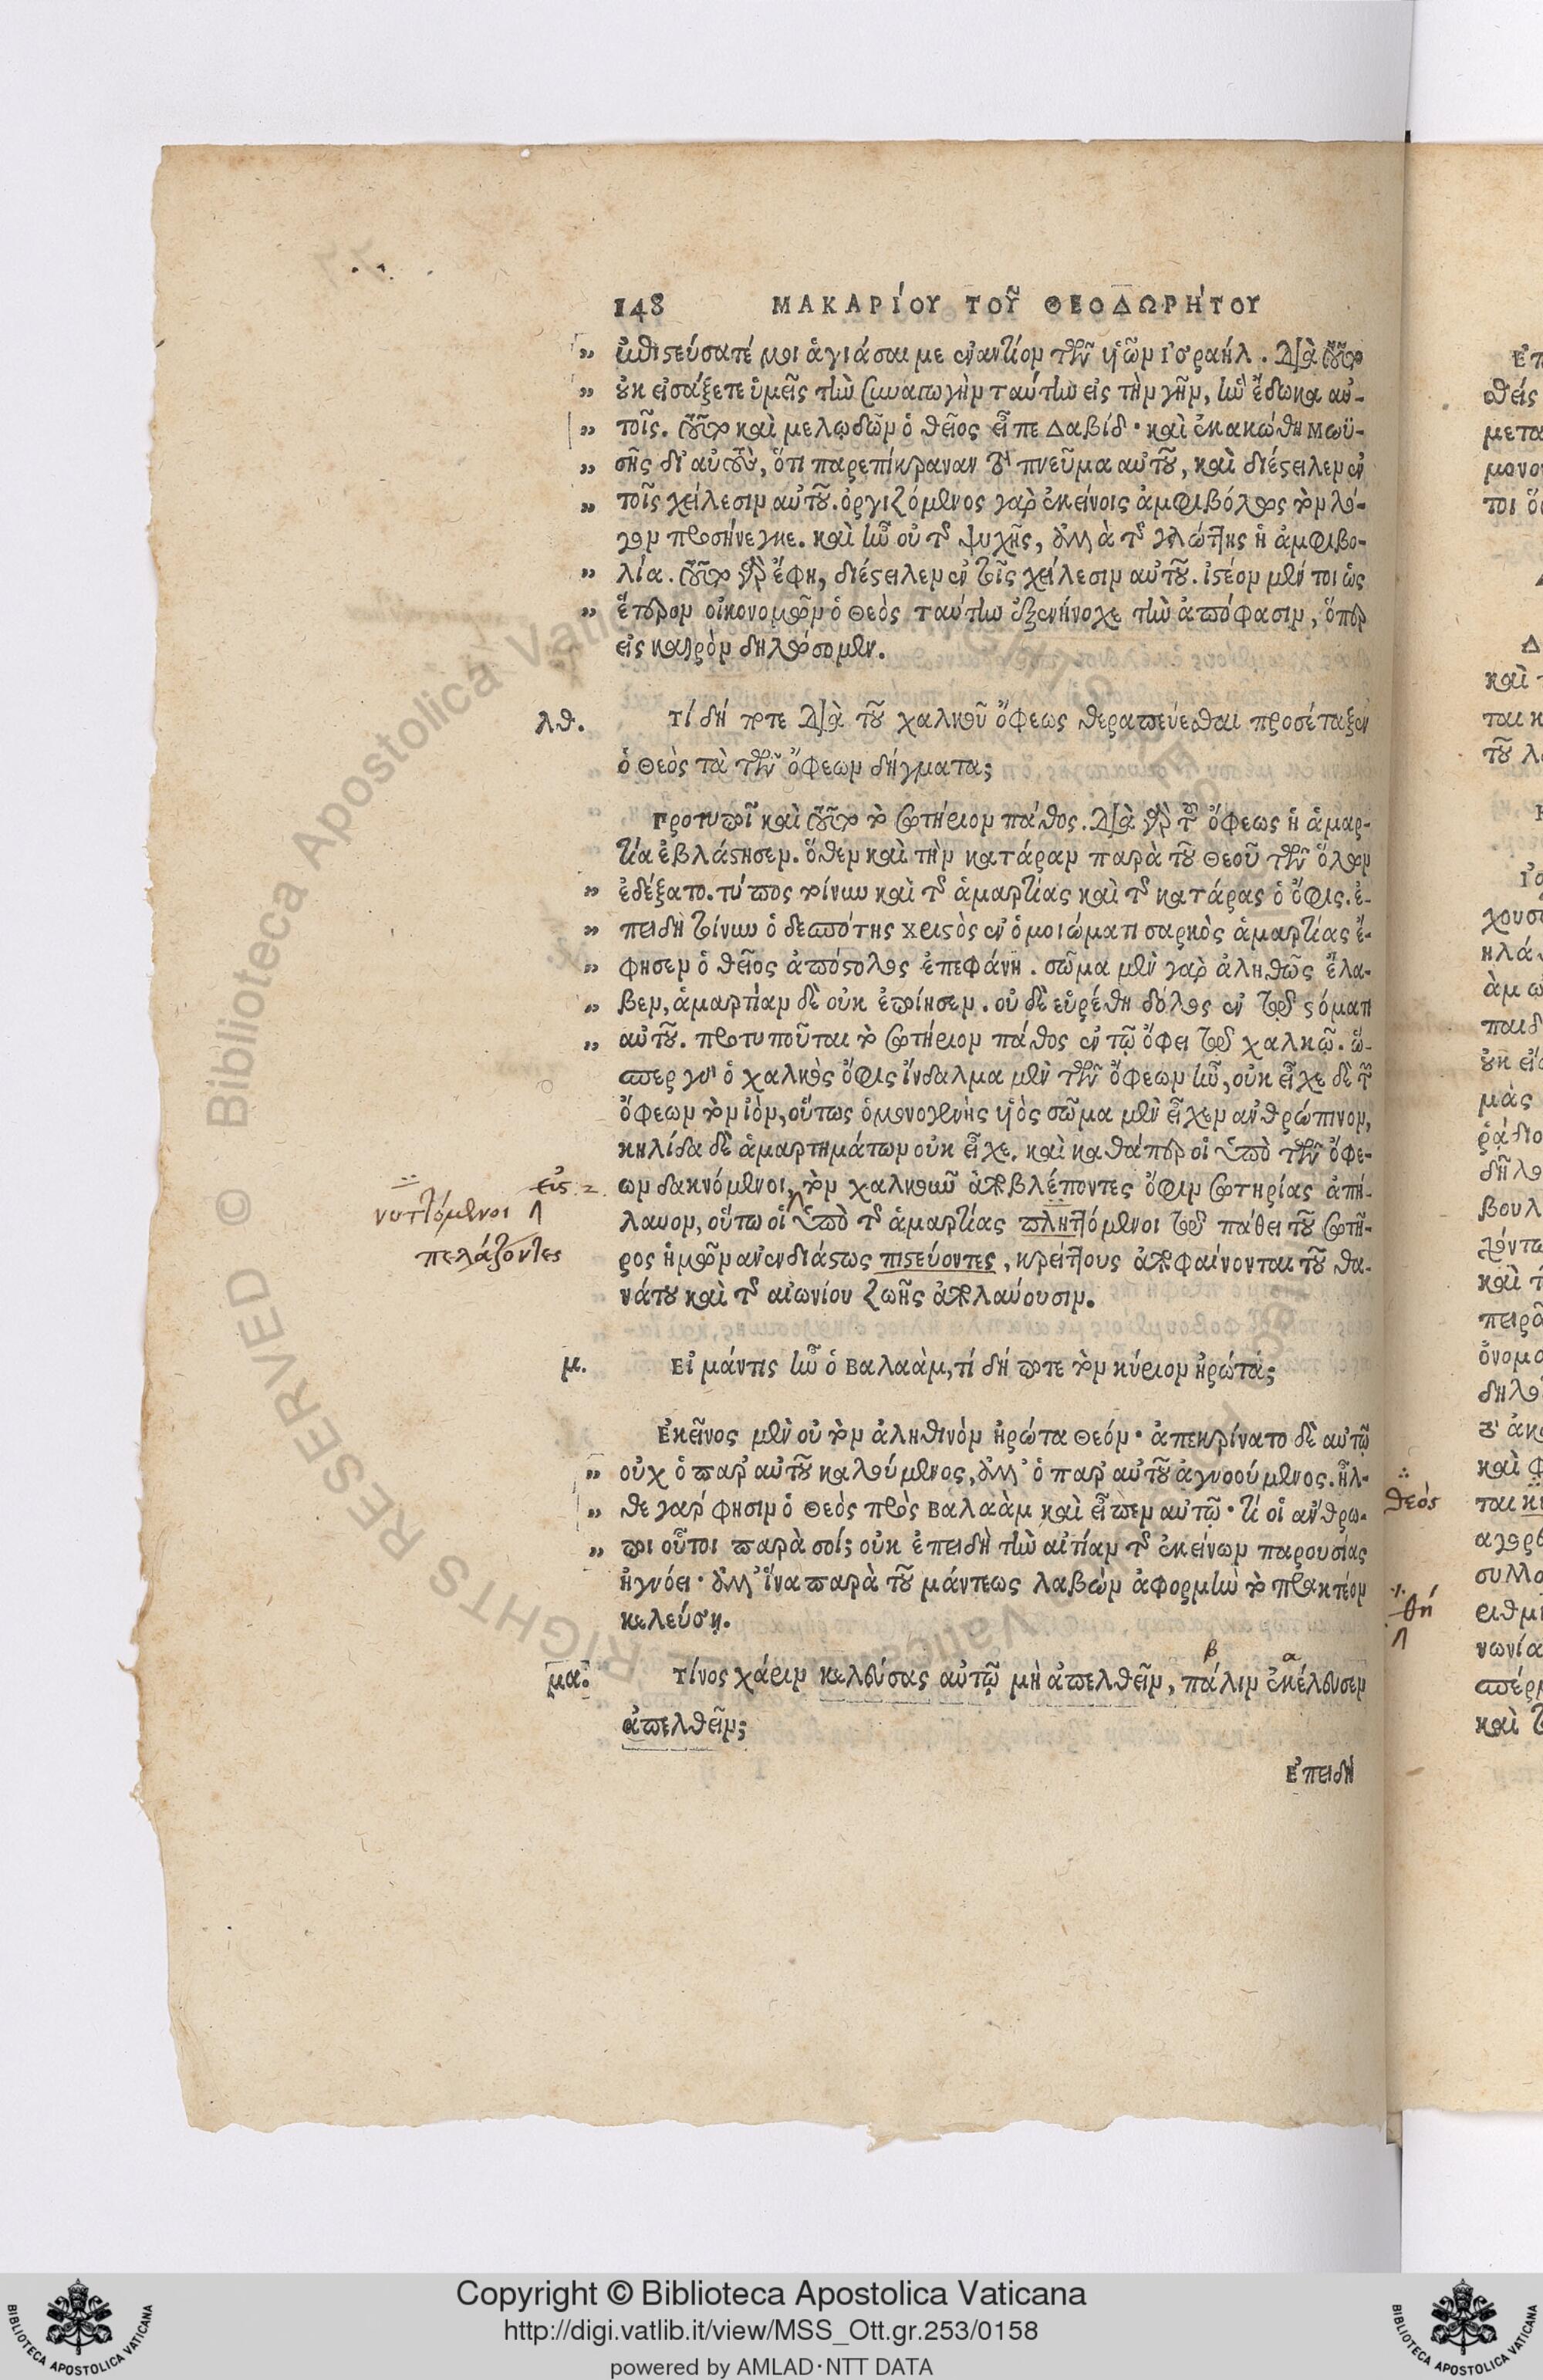 148 ΜΑΚΑΡΊΟΥ ΤΟΥ͂ ΘΕΟΔΩΡΉΤΟΥ
„ ἐπιστεύσατέ μοι ἁγιάσαι με ἐναντίον τῶν υἱῶν Ἰσραήλ. διὰ τοῦτο
„ οὐκ εἰσάξετε ὑμεῖς τὴν συναγωγὴν ταύτην εἰς τὴν γῆν, ἣν ἔδωκα αὐ-
„ τοῖς. τοῦτο καὶ μελῳδῶν ὁ θεῖος εἶπε Δαβίδ· καὶ ἐκακώθη Μωϋ-
„ σῆς δι' αὐτοὺς, ὅτι παρεπίκραναν τὸ πνεῦμα αὐτοῦ, καὶ διέστειλεν ἐν
„ τοῖς χείλεσιν αὐτοῦ. ὀργιζόμενος γὰρ ἐκείνοις ἀμφιβόλως τὸν λό-
γον προσήνεγκε. καὶ ἦν οὐ τῆς ψυχῆς, ἀλλὰ τῆς γλώττης ἡ ἀμφιβο-
„ λία. τοῦτο γὰρ ἔφη, διέστειλεν ἐν τοῖς χείλεσιν αὐτοῦ. ἰστέον μέν τοι ὡς
„ ἕτερον οἰκονομῶν ὁ Θεὸς ταύτην ἐξενήνοχε τὴν ἀπόφασιν, ὅπερ
εἰς καιρὸν δηλώσομεν.
λθ. Τί δή ποτε διὰ τοῦ χαλκοῦ ὄφεως θεραπεύεσθαι προσέταξεν
ὁ Θεὸς τὰ τῶν ὄφεων δήγματα;
Προτυποῖ καὶ τοῦτο τὸ σωτήριον πάθος. διὰ γὰρ τοῦ ὄφεως ἡ ἁμαρ-
τία ἐβλάστησεν. ὅθεν καὶ τὴν κατάραν παρὰ τοῦ Θεοῦ τῶν ὅλων
„ ἐδέξατο. τύπος τοίνυν καὶ τῆς ἁμαρτίας καὶ τῆς κατάρας ὁ ὄφις. ἐ-
„ πειδὴ τοίνυν ὁ δεσπότης Χριστὸς ἐν ὁμοιώματι σαρκὸς ἁμαρτίας ἔ-
„ φησεν ὁ θεῖος ἀπόστολος ἐπεφάνη. σῶμα μὲν γὰρ ἀληθῶς ἔλα-
„ βεν, ἁμαρτίαν δὲ οὐκ ἐποίησεν. οὐ δὲ εὑρέθη δόλος ἐν τῷ στόματι
„ αὐτοῦ. προτυποῦται τὸ σωτήριον πάθος ἐν τῷ ὄφει τῷ χαλκῷ. ὥ-
σπερ γὰρ ὁ χαλκὸς ὄφις ἴνδαλμα μὲν τῶν ὄφεων ἦν, οὐκ εἶχε δὲ τῶν
ὄφεων τὸν ἰὸν, οὕτως ὁ μονογενὴς υἱὸς σῶμα μὲν εἶχεν ἀνθρώπινον,
κηλίδα δὲ ἁμαρτημάτων οὐκ εἶχε. καὶ καθάπερ οἱ ὑπὸ τῶν ὄφε-
εἰς
ων δακνόμενοι, τὸν χαλκοῦν ἀποβλέποντες ὄφιν σωτηρίας ἀπή-
νυττόμενοι
λαυον, οὕτω οἱ ὑπὸ τῆς ἁμαρτίας πληττόμενοι τῷ πάθει τοῦ σωτῆ-
πελάζοντες
ρος ἡμῶν ἀνενδιάστως πιστεύοντες, κρείττους ἀποφαίνονται τοῦ θα-
νάτου καὶ τῆς αἰωνίου ζωῆς ἀπολαύουσιν.
μ. Εἰ μάντις ἦν ὁ Βαλαὰμ, τί δή ποτε τὸν κύριον ἠρώτα;
Ἐκεῖνος μὲν οὐ τὸν ἀληθινὸν ἠρώτα Θεόν· ἀπεκρίνατο δὲ αὐτῷ
„ οὐχ ὁ παρ' αὐτοῦ καλούμενος, ἀλλ' ὁ παρ' αὐτοῦ ἀγνοούμενος. ἦλ-
„ θε γάρ φησιν ὁ Θεὸς πρὸς Βαλαὰμ καὶ εἶπεν αὐτῷ· τί οἱ ἄνθρω-
„ ποι οὗτοι παρὰ σοί; οὐκ ἐπειδὴ τὴν αἰτίαν τῆς ἐκείνων παρουσίας
ἠγνόει· ἀλλ' ἵνα παρὰ τοῦ μάντεως λαβὼν ἀφορμὴν τὸ πρακτέον
κελεύσῃ.
β α
μα. Τίνος χάριν κελεύσας αὐτῷ μὴ ἀπελθεῖν, πάλιν ἐκέλευσεν
ἀπελθεῖν;
Ἐπειδὴ
θεὸς
θή
Copyright © Biblioteca Apostolica Vaticana
http://digi.vatlib.it/view/MSS_Ott.gr.253/0158
powered by AMLAD·NTT DATA
BIBLIOTECA APOSTOLICA VATICANA
BIBLIOTECA APOSTOLICA VATICANA